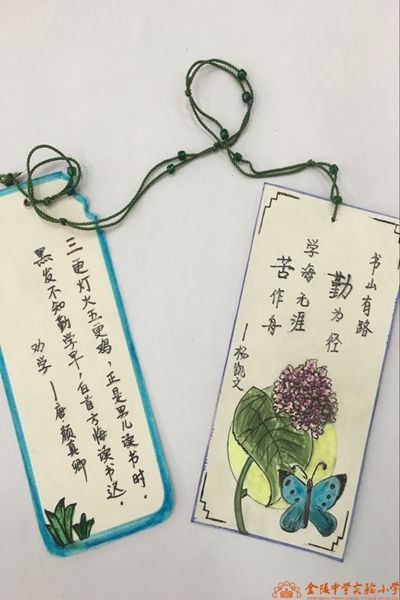 三更灯火五更鸡，正是男儿读书时。
黑发不知勤学早，白首方悔读书迟。
劝学 —唐颜真卿
书山有路
勤为径
学海无涯
苦作舟
—杨凯文
金陵中学实验小学